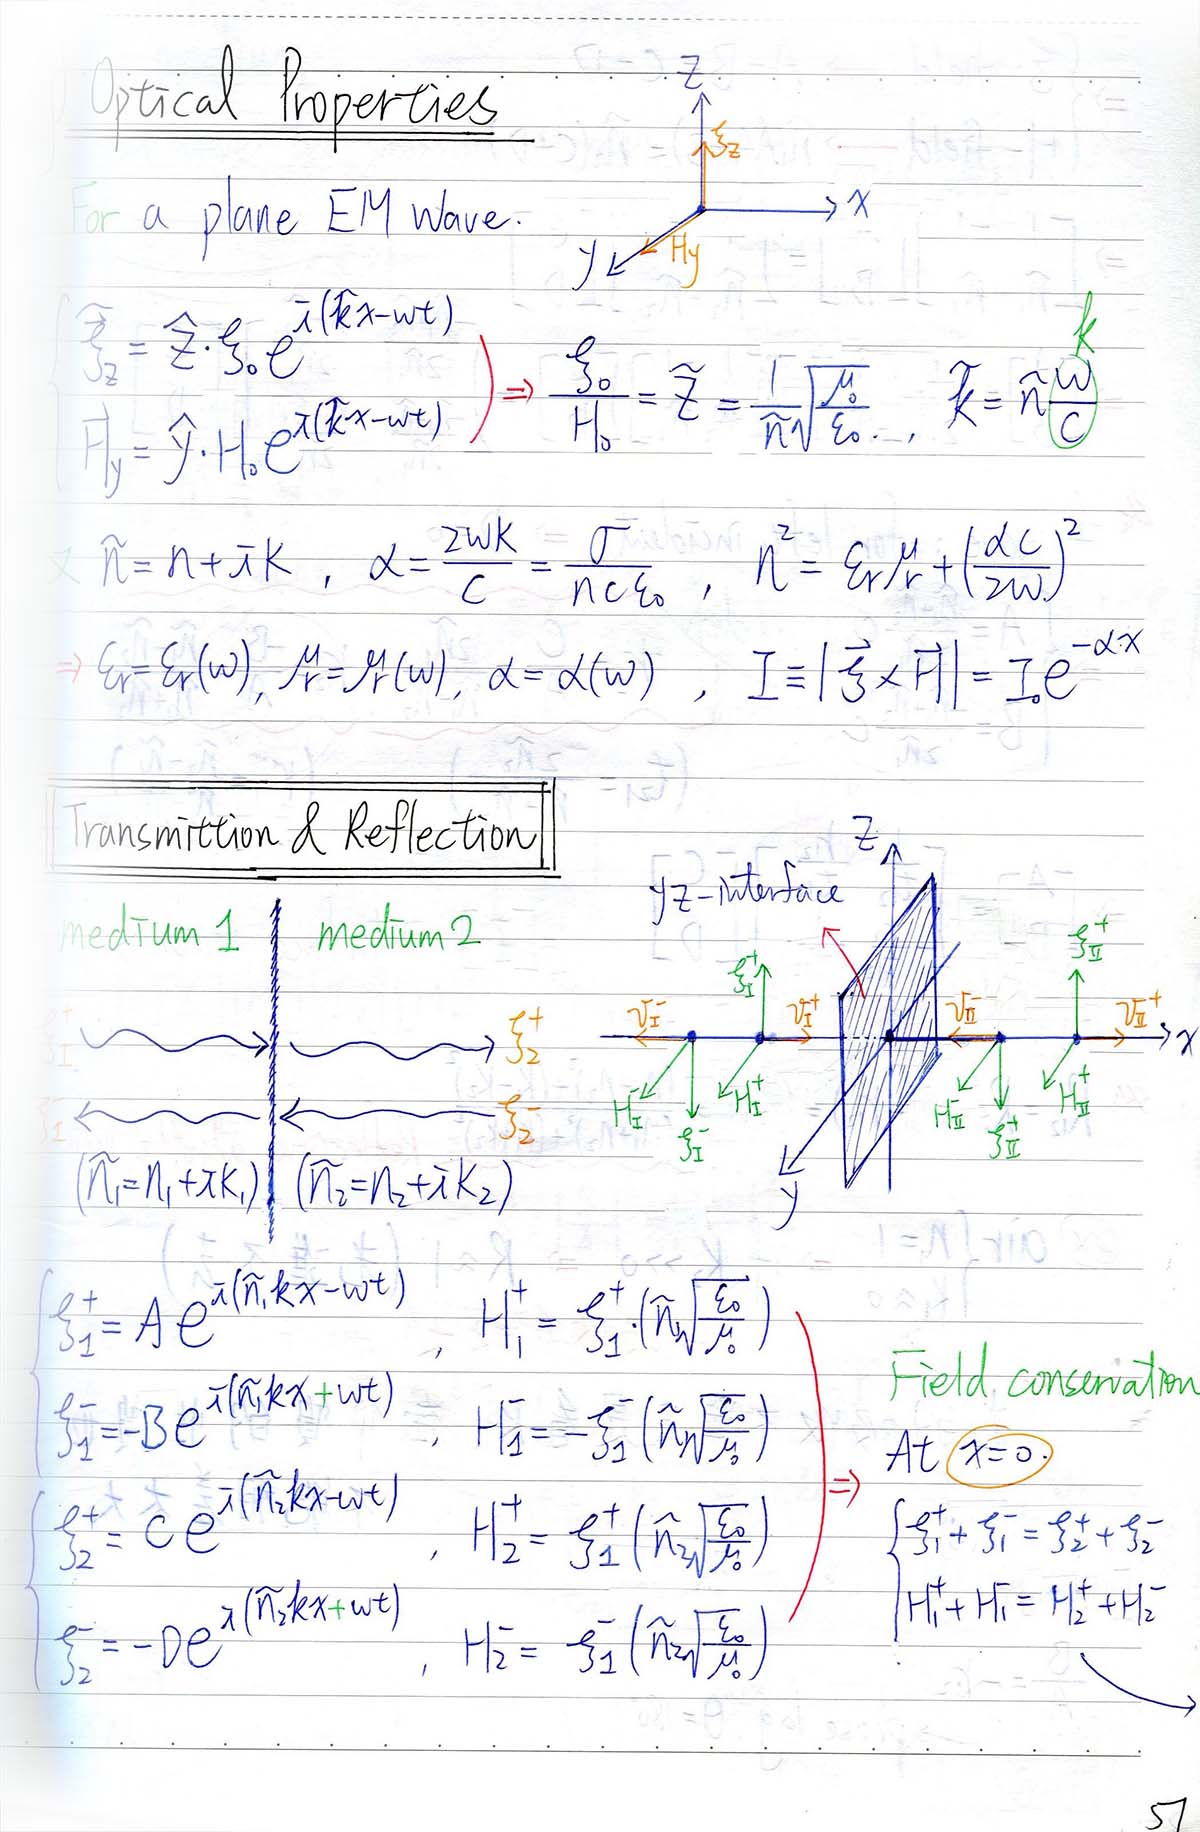 Optical Properties
Z
ξz
x
Hy
y
For a plane EM wave.
ξ⃗z = ẑ·ξ₀ e^{i(k̃x-wt)}
H⃗y = ŷ·H₀ e^{i(k̃x-wt)}
⇒ ξ₀/H₀ = Z̃ = (1/ñ)√(μ₀/ε₀) , k̃ = ñ (w/c)
k
ñ = n + iK , α = 2wK/c = σ/(ncε₀) , n² = εrμr + (αc/2w)²
⇒ εr = εr(w), μr = μr(w), α = α(w) , I ≡ |ξ⃗ × H⃗| = I₀e^{-α·x}
Transmittion & Reflection
medium 1 medium 2
ξ₁⁺ ξ₂⁺
ξ₁⁻ ξ₂⁻
(ñ₁=n₁+iK₁) (ñ₂=n₂+iK₂)
yz-interface
Z
ξ_I⁺ ξ_II⁺
v_I⁻ v_I⁺ v_II⁻ v_II⁺ x
H_I⁻ H_I⁺ H_II⁻ H_II⁺
ξ_I⁻ ξ_II⁺
y
ξ₁⁺ = A e^{i(ñ₁kx-wt)} , H₁⁺ = ξ₁⁺·(ñ₁√(ε₀/μ₀))
ξ₁⁻ = -B e^{i(ñ₁kx+wt)} , H₁⁻ = -ξ₁⁻(ñ₁√(ε₀/μ₀))
ξ₂⁺ = C e^{i(ñ₂kx-wt)} , H₂⁺ = ξ₁⁺(ñ₂√(ε₀/μ₀))
ξ₂⁻ = -D e^{i(ñ₂kx+wt)} , H₂⁻ = ξ₁⁻(ñ₂√(ε₀/μ₀))
⇒
Field conservation
At x=0.
ξ₁⁺ + ξ₁⁻ = ξ₂⁺ + ξ₂⁻
H₁⁺ + H₁⁻ = H₂⁺ + H₂⁻
51